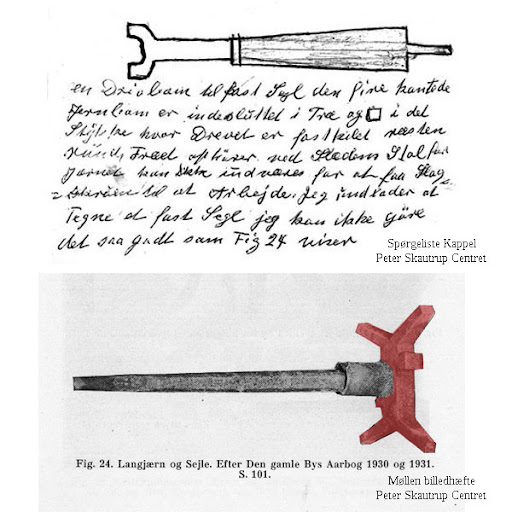 en Drivbam til fast Segl den fire kantede
Jernbam er indesluttet i Træ og □ i det
Stykke hvor Drevet er fastkilet resten
rund, Træet ophører ved Stedens
Jarnet kan ikke undværes for at faa
til at Arbejde. Jeg undlader at
Tegne et fast Segl jeg kan ikke gjøre
det saa godt som Fig 24 viser
Spørgeliste Kappel
Peter Skautrup Centret
Fig. 24. Langjærn og Sejle. Efter Den gamle Bys Aarbog 1930 og 1931.
S. 101.
Møllen billedhæfte
Peter Skautrup Centret